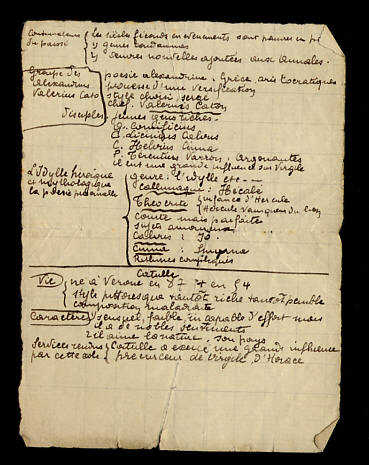 Continuateurs du passé
les siècles féconds en évènements sont pauvres en
1) genres condamnés
2) œuvres nouvelles ajoutées aux annales.
Groupe des Alexandrins Valerius Cato
poésie alexandrine : Grèce, aristocratiques
prouesse d'une versification
style choisi, serré
chef. Valerius Caton
disciples
jeunes gens riches
Q. Cornificius
C. Licinius Calvus
C. Helvius Cinna
P. Terentius Varron, Argonautes
il eut une grande influence sur Virgile
L'Idylle héroïque et mythologique
la poésie personnelle
genre : l'idylle etc
Callimaque : Hécalé
Théocrite enfance d'Hercule
Hercule vainqueur du lion
courte mais parfaite
sujets amoureux
Calvus : Io
Cinna : Smyrna
Rythmes compliqués
Catulle
Vie né à Vérone en 87 † en 54
style pittoresque tantôt riche tantôt pénible
composition maladroite
Caractère 1) sensuel, faible, incapable d'effort mais
il a de nobles sentiments
2) il aime la nature, son pays
Services rendus par cette école
Catulle a exercé une grande influence
précurseur de Virgile, d'Horace